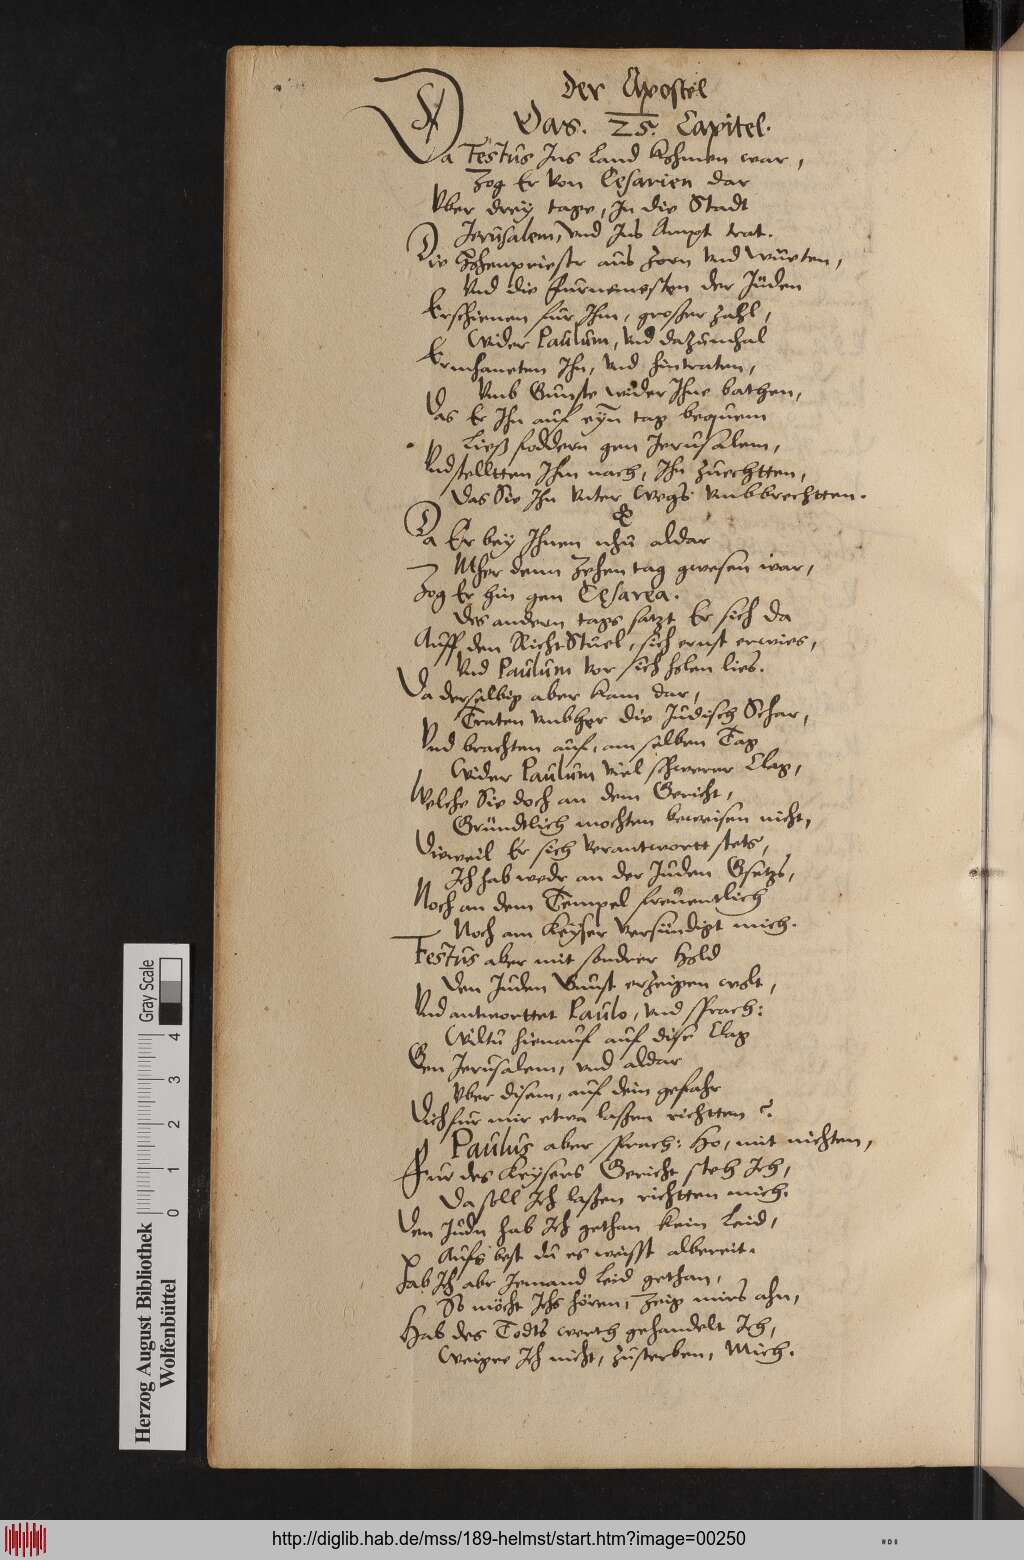 Der Apostel
Das. 25. Capitel.
Da Festus Ins Land kohmen war,
Zog Er von Cesarien dar
Vber drey tage, In die Stadt
Jerusalem, vnd Ins Ampt trat.
Die Hohenpriestr aus zorn vnd wueten,
Vnd die Furnemesten der Jüden
Erschienen für Ihm, grosser zahl,
Wider Paulum, vnd dazumhal
Ermhaneten Ihn, vnd hintraten,
Vmb Gunste wider Ihne bathen,
Das Er Ihn auf eyn tag bequem
Ließ foddern gen Jerusalem,
Vnd stelltten Ihm nach, Ihn zuechtten,
Das Sie Ihn vnter wegs vmbbrechtten.
Da Er bey Ihnen nhu aldar
Mher denn zehen tag gwesen war,
Zog Er hin gen Cesarea.
Des andern tags satzt Er sich da
Auff den Richt Stuel, sich ernst erwies,
Vnd Paulum vor sich holen lies.
Da derselbig aber kam dar,
Traten vmbher die Judisch Schar,
Vnd brachten auf, am selben Tag
Wider Paulum viel schwerer Clag,
Welche Sie doch an dem Gericht,
Gründtlich mochten beweisen nicht,
Dieweil Er sich verantwortt stets,
Ich hab wedr an der Juden Gsetzs,
Noch an dem Tempel freuentlich
Noch am Keyser versundigt mich.
Festus aber mit sondrer Hold
Den Juden Gunst erzeigen wolt,
Vnd antworttet Paulo, vnd sprach:
Wiltu hienauf auf dise Clag
Gen Jerusalem, vnd aldar
Vber disem, auf dein gefahr
Dich fur mir etwa lassen richtten?
Paulus aber sprach: Ho, mit nichten,
Fur des Keysers Gericht steh Ich,
Da soll Ich lassen richtten mich.
Den Judn hab Ich gethan kein Leid,
Aufs best du es weisst albereit.
Hab Ich abr Jemand Leid gethan,
So möcht Ichs hören, Zeig mirs ahn,
Hab des Todts werth gehandelt Ich,
Weigre Ich nicht, zusterben, Mich.
Gray Scale
0 1 2 3 4
Herzog August Bibliothek
Wolfenbüttel
http://diglib.hab.de/mss/189-helmst/start.htm?image=00250